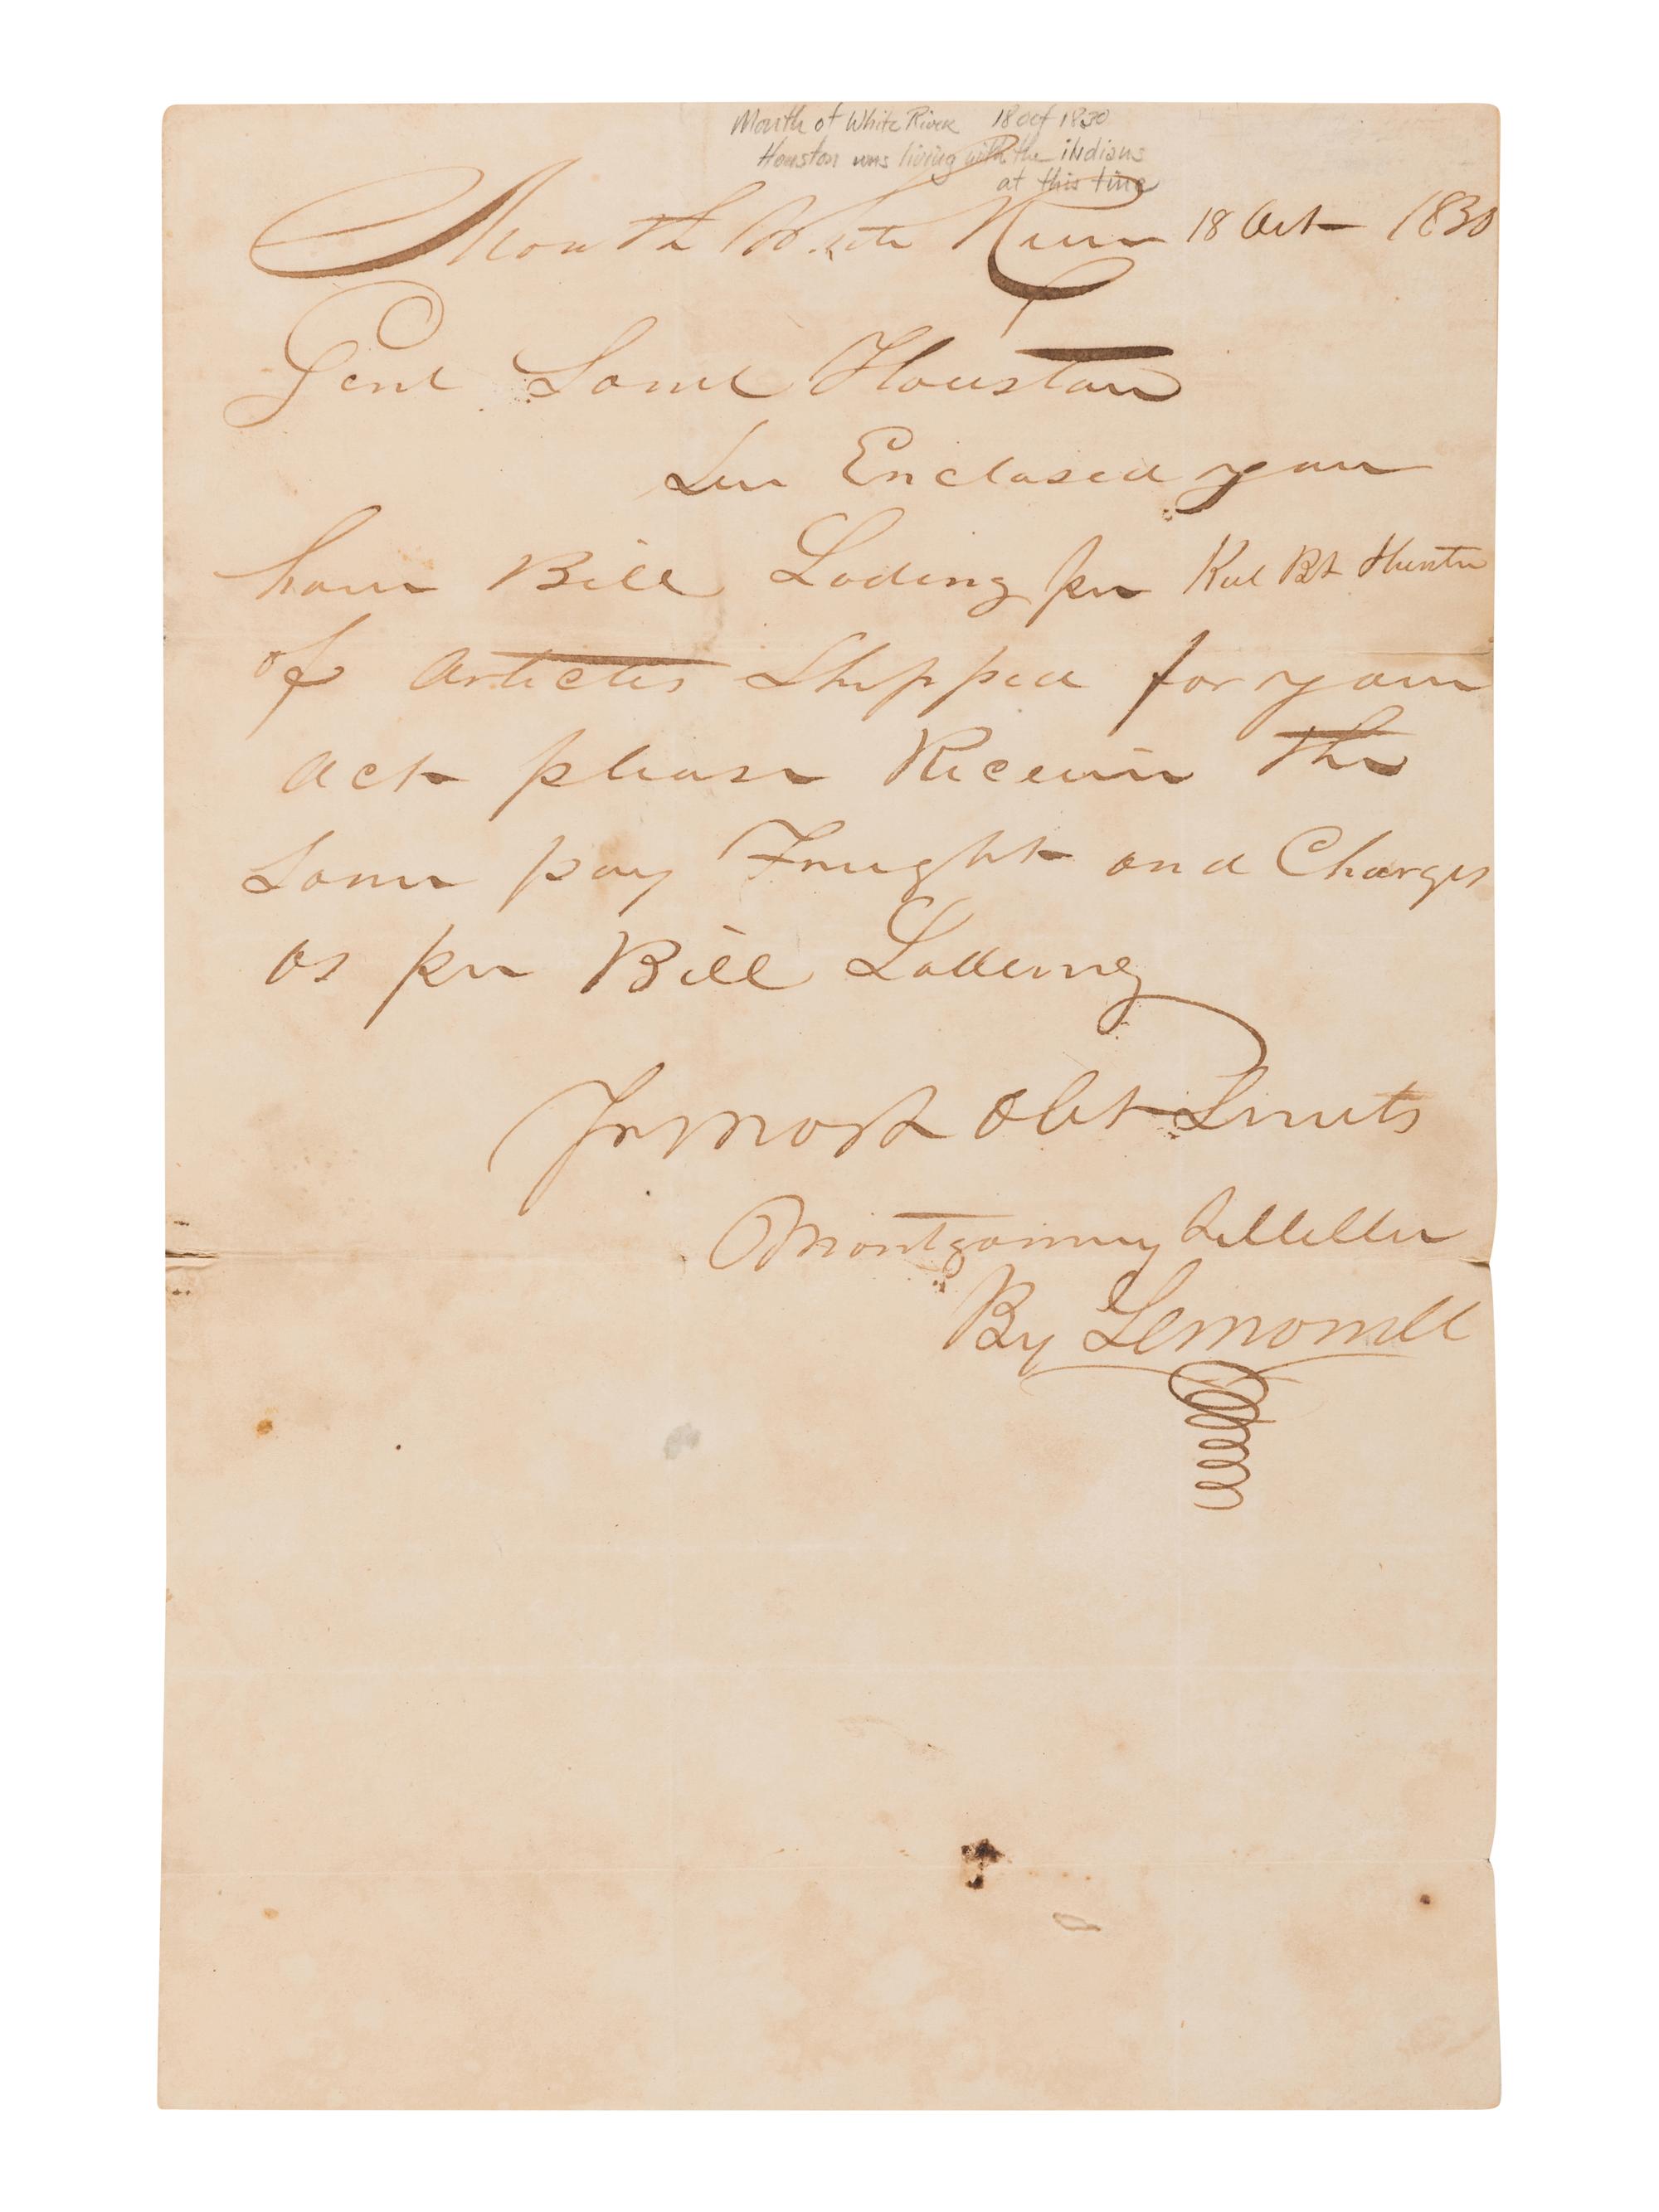 Mouth of White River 18 Oct 1830
Houston was living with the indians
at this time
Mouth White River 18 Oct 1830
Genl Saml Houston
Sir Enclosed you
have Bill Lading per Keel Bt Hunter
of Articles Shipped for your
Act please Receive the
Same pay Freight and Charges
as per Bill Ladeing
Yr most Obt Srvnts
Montgomery
By